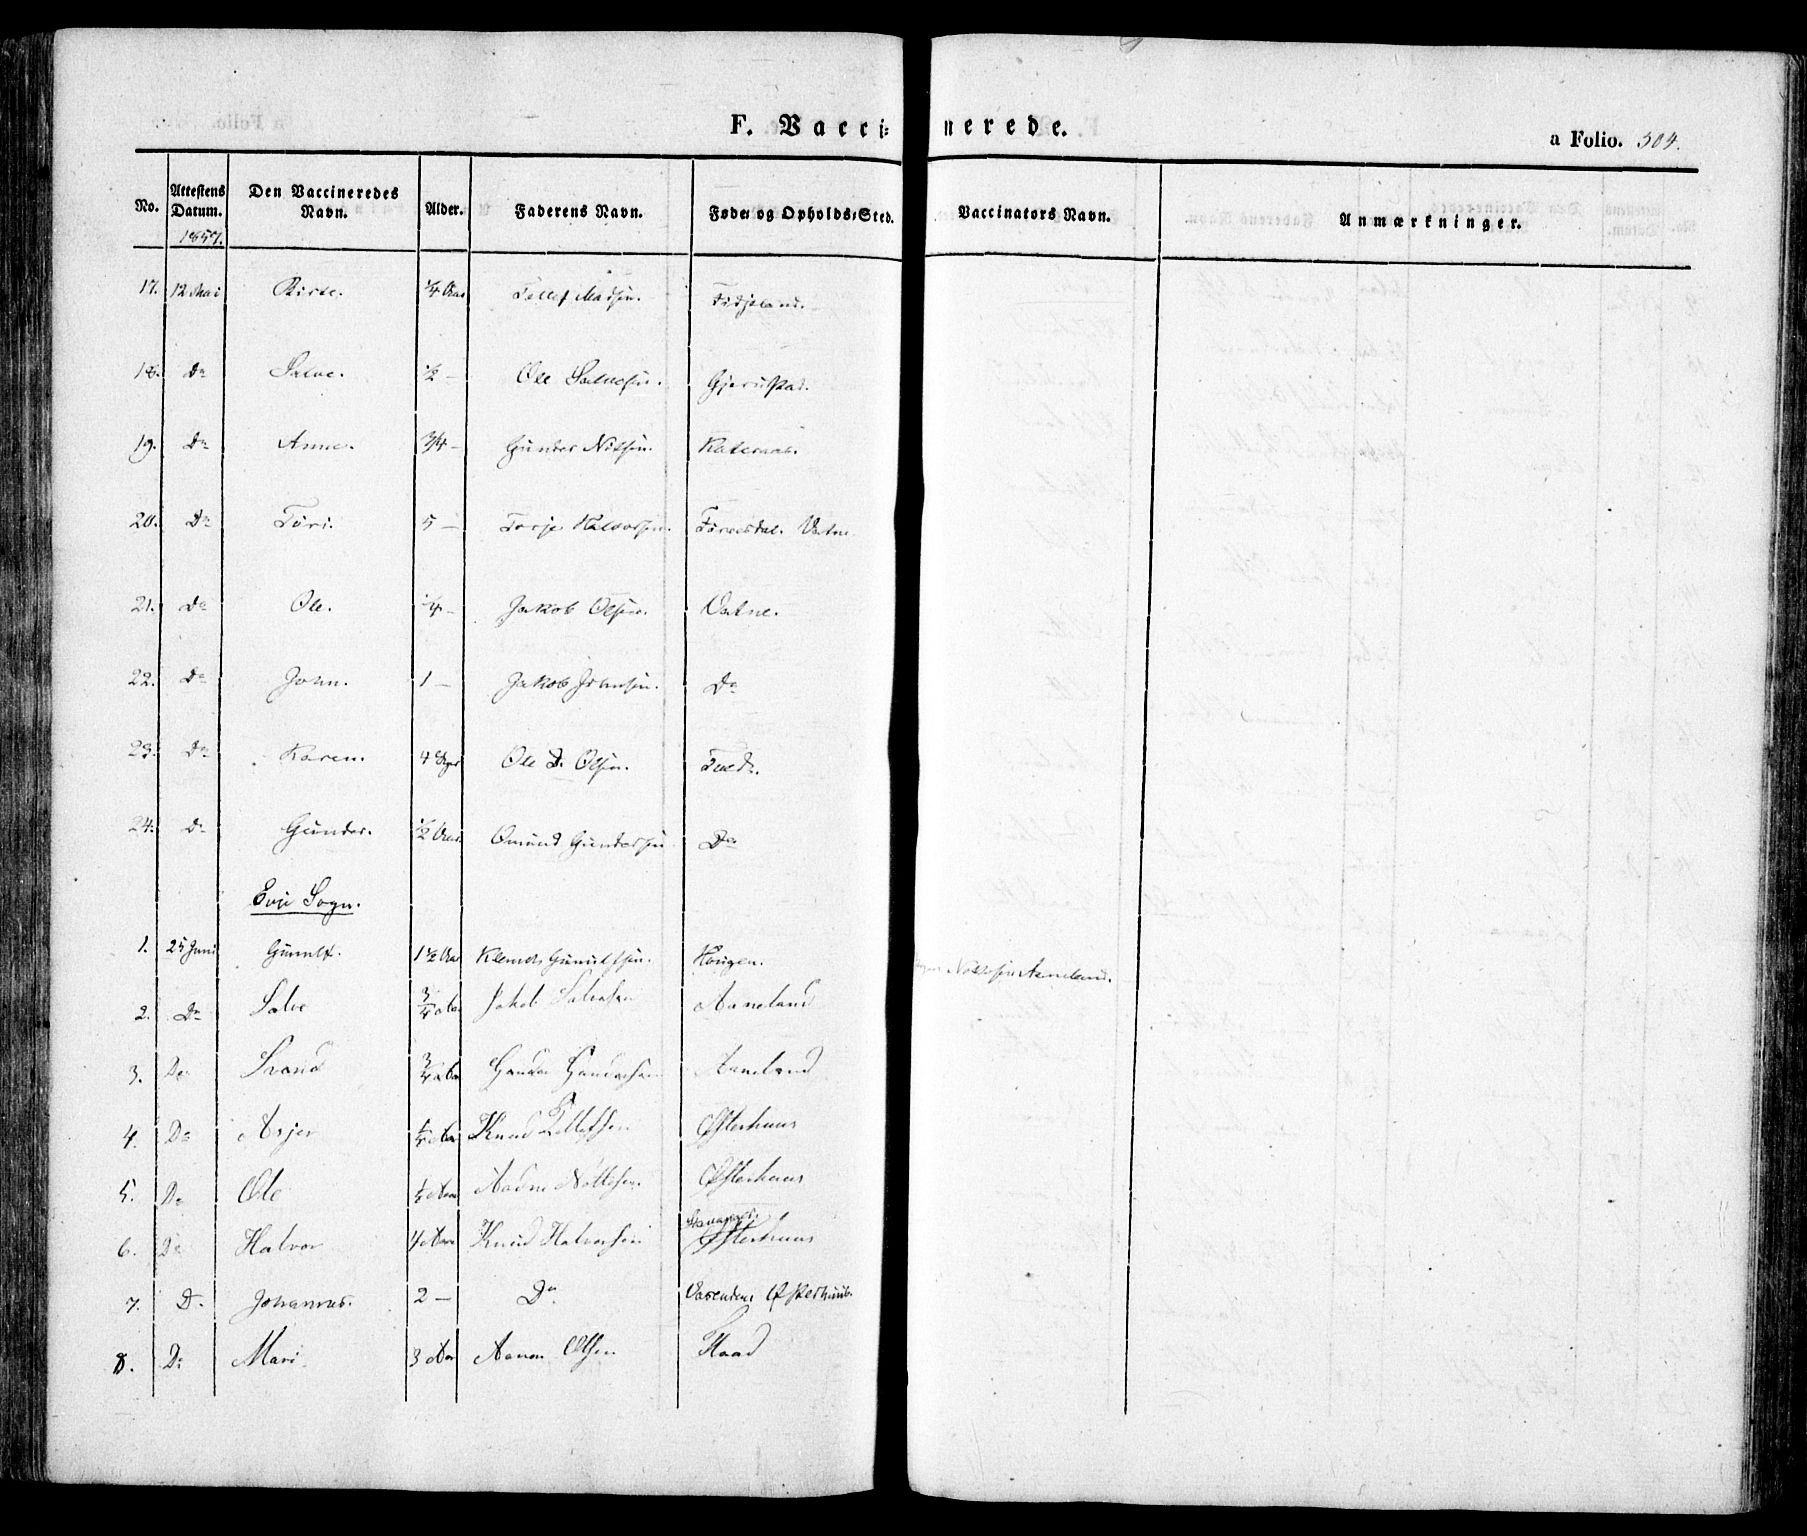 F. Vaccinerede.
a Folio. 304.
No. Attestens Datum. Den Vaccineredes Navn. Alder. Faderens Navn. Føde- og Opholds-Sted. Vaccinators Navn. Anmærkninger.
1857.
17. 12 Mai Birte. 1/4 Aar Tellef Madsen. Fidjeland.
18. Do Salve. 1/2 — Ole Salvesen. Gjerustad.
19. Do Anne. 3/4 — Gunder Nilsen.
20. Do Tori. 5 — Terje Halvorsen. Vatne
21. Do Ole. 1/4 — Jakob Olsen. Vatne.
22. Do John. 1 — Jakob Johnsen. Do
23. Do Karen. 4 Ole D. Olsen. Tveit.
24. Do Gunder. 1/2 Aar. Omund Gundersen Do
Evje Sogn.
1. 25 Juni Gunult. 1 1/2 Aar Klemet Gunultsen. Hougen. Aaneland.
2. Do Salve 3/4 Aar Jakob Salvesen Aaneland
3. Do Svend 3/4 Aar Gunder Gundersen Aaneland
4. Do Asjer 1/4 Aar Knud Tellefsen Østerhuus
5. Do Ole 1/2 Aar Aadne Østerhuus
6. Do Halvor 4 Aar Knud Halvorsen Østerhuus
7. Do Johannes. 2 — Do Vasenden Østerhuus
8. Do Mari 3 Aar Aanon Olsen Flaad